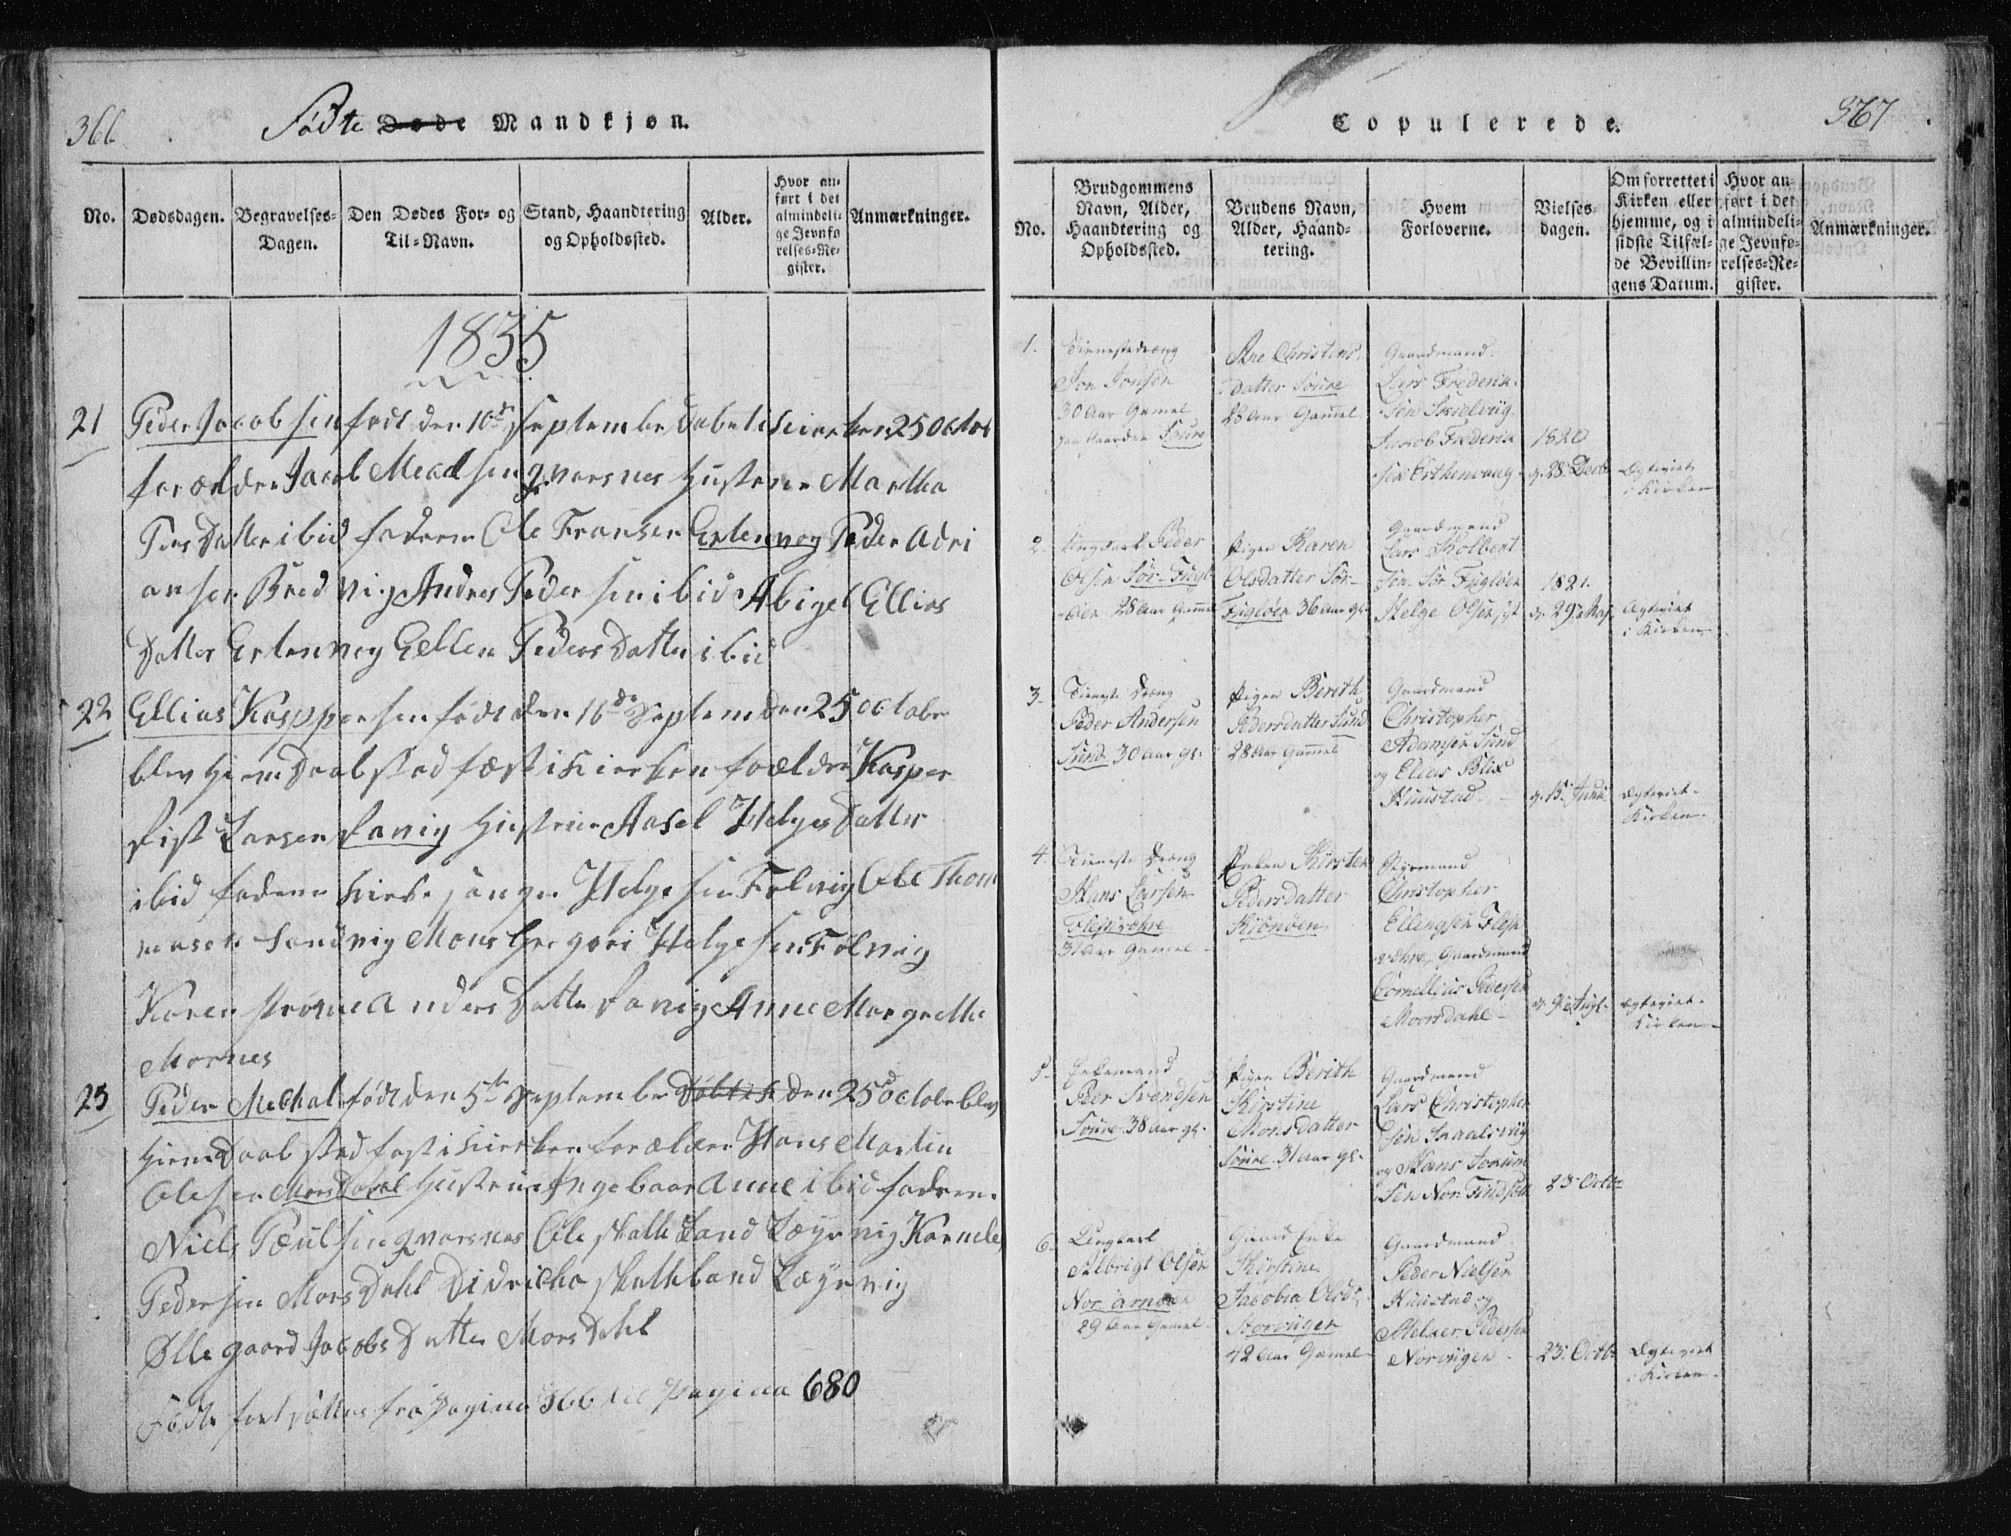 366
Fødte Døde Mandkjøn.
No.
Dødsdagen.
Begravelses-
Dagen.
Den Dødes For- og
Til-Navn.
Stand, Haandtering
og Opholdssted.
Alder.
Hvor an-
ført i det
almindeli-
ge Jevnfø
relses-Re-
gister.
Anmærkninger.
1835
21 Peder Jacobsen født den 10de September Døbt i Kierken 25 octob
forældre Jacob Meocksen qvarsnes Hustrue Martha
Datter ibid fadere Ole Fransen Ertenvog Peder Adri
ansen Bredvig Andres Pedersen ibid Abigel Ellias
Datter Ertenvog Ellen Peders Datter ibid
22 Ellias Kasppersen født den 16de Septem den 25 octobr
blev Hiem Daab stadfæst i Kierken forældre Kasper
Fist Larsen Havig Hustrue Aasel Helges Datter
ibid fadere Kirke sanger Helgesen Felvig Ole Thom
masen Sandvig Mons Gregori Helgesen Følvig
Karen Anders Datter Anne Margrethe
Mornes
23 Peder Mechal født den 5te September Døbt i K den 25de octobr blev
Hiem Daab stadfæst i Kierken forældre Hans Martin
Olesen Morsdahl Hustrue Ingebaar Anne ibid fadere
Niels Poulsen qvarsnes Ole skatteLand Læyrvig Kornele
Pedersen MorsDahl Didricka skatteland Læyrvig
Ollegaard Jacobs Datter MorsDahl
Fødte fortsættes fra Pagina 366 til Pagina 680
367
Copulerede.
No.
Brudgommens
Navn, Alder,
Haandtering og
Opholdssted.
Brudens Navn,
Alder, Haand-
tering.
Hvem
Forloverne.
Vielses-
dagen.
Om forrettet i
Kirken eller
hjemme, og i
sidste Tilfæl-
de Bevillin-
gens Datum.
Hvor an-
ført i det
almindeli-
ge Jevnfø-
relses-Re-
gister.
Anmærkninger.
1.
Tienestedræng
Jon Jonsen
30 Aar Gamel
Ane Christens
Datter
28 Aar Gamel.
Gaardmand
Lars Frederik-
sen
Jacob Frederik
sen Erthenvaag
1820
d. 28 Decbr
Ægteviet
i Kirken
2.
Ungkarl Peder
Olsen Sør-Fugl-
øen 28 Aar Gamel
Pigen Karen
Olsdatter Sør-
Fugløen 36 Aar gl.
Gaardmand
Lars Tholbert
sen Sør Fugløen
Helge Olsen
1821.
d. 29
Ægteviet
i Kirken
3.
Tieneste Dræng
Peder Andersen
Sund 30 Aar gl.
Pigen Berith
Pedersdatter Sund
28 Aar Gammel
Gaardmand
Christopher
Adamsen Sund
og Elias Blix
Huustad
d. 15 Junii
Ægteviet
Kirken
4.
Tieneste Dræng
Hans Larsen
31 Aar Gamel
Enken Kirsten
Pedersdatter
Skiønøen
Christopher
Ellingsen Flesk
Gaardmand
Cornellius Pedersen
Morsdahl
d. 9 Augt.
Ægteviet
Kirken
5.
Enkemand
Peer Svendsen
38 Aar gl.
Pigen Berith
Kirstine
Monsdatter
31 Aar gl.
Gaardmand
Lars Christopher
sen
og Hans Joakim
sen Nor
23 Octbr
6.
Ungkarl
Albrigt Olsen
Nor arnøen
29 Aar Gamel
Gaard Enke
Kirstine
Jacobia Olsd.
Storvigen
42 Aar Gamel
Gaardmand
Peder Nielsen
Huustad og
Pedersen
Norvigen
23 Octbr
Ægteviet
i Kirken